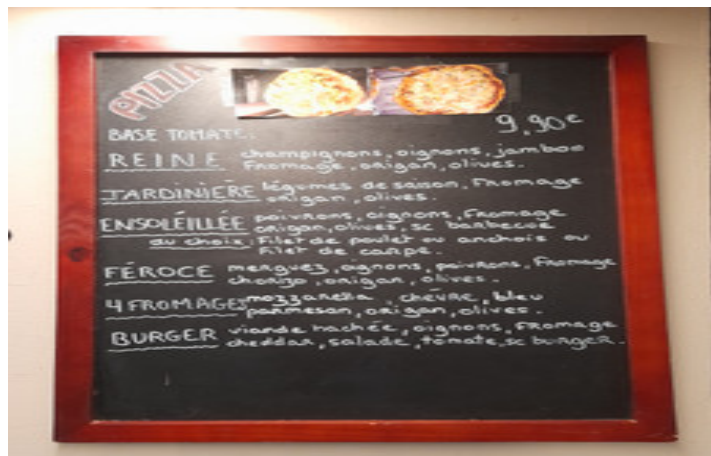 PIZZA
BASE TOMATE:
9,90€
REINE champignons, oignons, jambon
Fromage, origan, olives.
JARDINIÈRE légumes de saison, Fromage
origan, olives.
ENSOLÉILLÉE poivrons, oignons, Fromage
origan, olives, sc barbecue
au choix: Filet de poulet ou anchois ou
Filet de carpe.
FÉROCE merguez, oignons, poivrons, Fromage
chorizo, origan, olives.
4 FROMAGES mozzarella, chèvre, bleu
parmesan, origan, olives.
BURGER viande hachée, oignons, Fromage
cheddar, salade, tomate, sc burger.